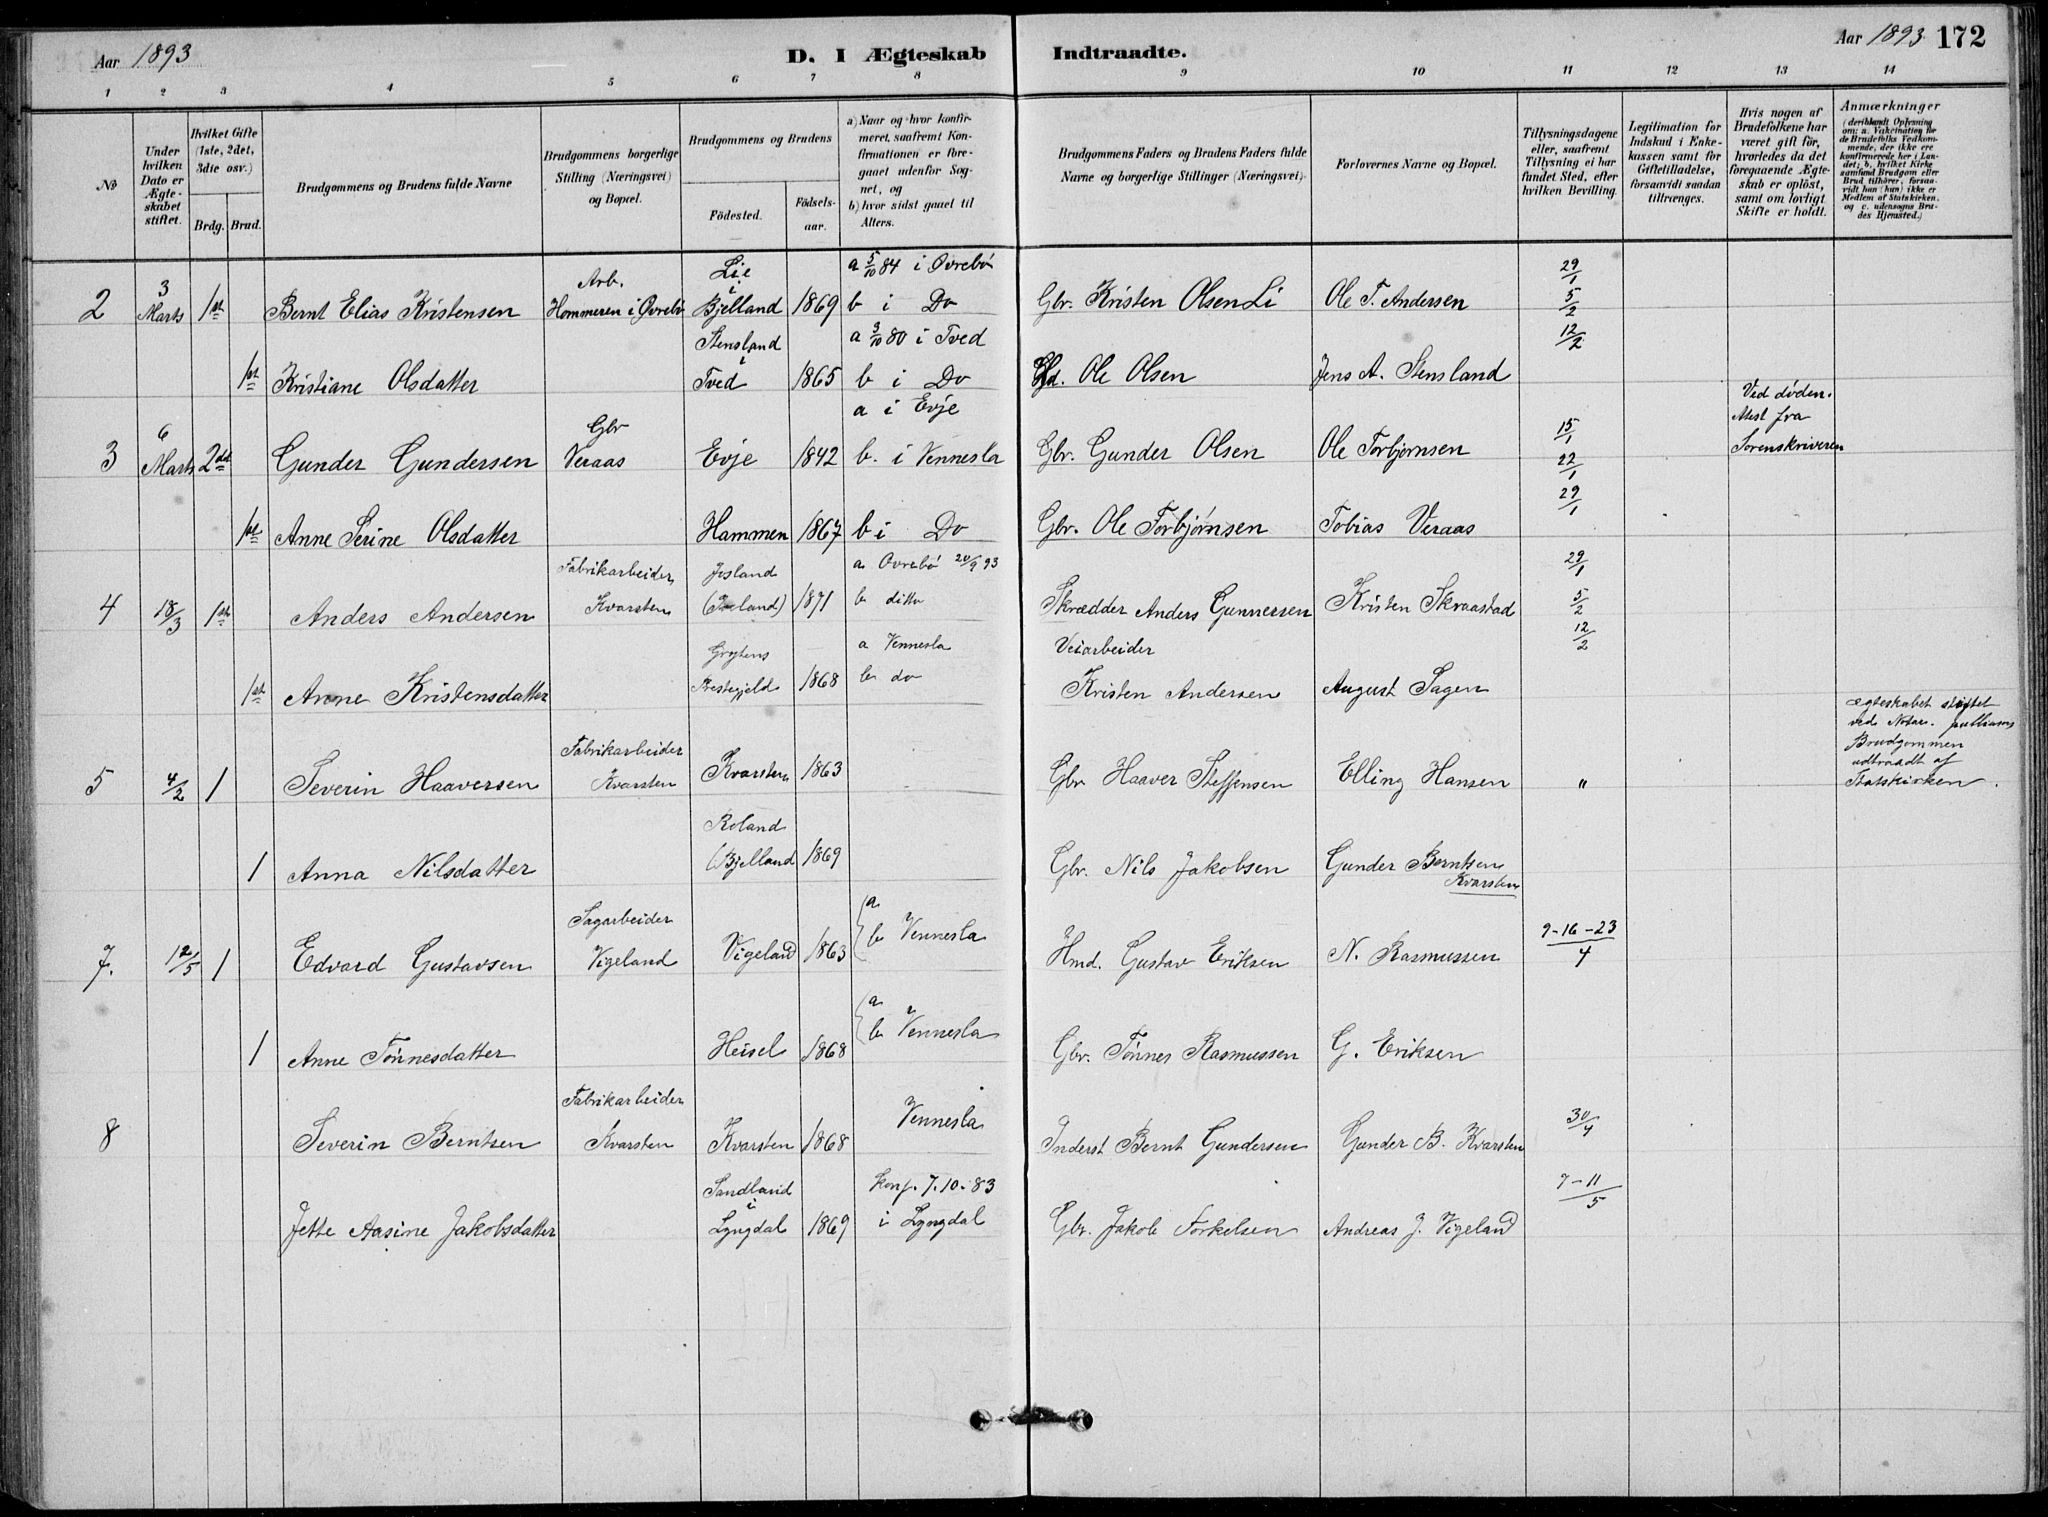 Aar 1893 D. I Ægteskab Indtraadte. Aar 1893 172
1 2 3 4 5 6 7 8 9 10 11 12 13 14
No
Under hvilken Dato er Ægteskabet stiftet.
Hvilket Gifte (1ste, 2det, 3die osv.)
Brdg. Brud.
Brudgommens og Brudens fulde Navne
Brudgommens borgerlige Stilling (Næringsvei) og Bopæl.
Brudgommens og Brudens
Födested. Födselsaar.
a) Naar og hvor konfirmeret, saafremt Konfirmationen er foregaaet udenfor Sognet, og
b) hvor sidst gaaet til Alters.
Brudgommens Faders og Brudens Faders fulde Navne og borgerlige Stillinger (Næringsvei).
Forlovernes Navne og Bopæl.
Tillysningsdagene eller, saafremt Tillysning ei har fundet Sted, efter hvilken Bevilling.
Legitimation for Indskud i Enkekassen samt for Giftetilladelse, forsaavidt saadan tiltrænges.
Hvis nogen af Brudefolkene har været gift før, hvorledes da det foregaaende Ægteskab er oplöst, samt om lovligt Skifte er holdt.
Anmærkninger
(deriblandt Oplysning om: a. Vakcination for de Brudefolks Vedkommende, der ikke ere konfirmerede her i Landet; b. hvilket Kirkesamfund Brudgom eller Brud tilhörer, forsaavidt han (hun) ikke er Medlem af Statskirken, og c. udensogns Brudes Hjemsted.)
Arb. Lie a 5/10 84 i Øvrebø 29/1
2 3 Marts 1st Bernt Elias Kristensen Hommeren i Øvrebø i Bjelland 1869 b i Do Gbr. Kristen Olsen Li Ole T. Andersen 5/2
Stensland a 3/10 80 i Tved 12/2
1st Kristiane Olsdatter i Tved 1865 b i Do Ole Olsen Jens A. Stensland
Gbr a i Evje Ved døden. Atest fra Sorenskriveren
3 6 Marts 2det Gunder Gundersen Veraas Evje 1842 b. i Vennesla Gbr. Gunder Olsen Ole Torbjørnsen 15/1 22/1 29/1
1st Anne Serine Olsdatter Hammen 1867 b i Do Gbr. Ole Torbjørnsen Tobias Veraas
Fabrikarbeider Josland a Øvrebø 20/9 93 29/1
4 18/3 1st Anders Andersen Kvarsten 1871 b ditto Skrædder Anders Gunnersen Kristen Skraastad 5/2
a Vennesla Veiarbeider 12/2
1st Anne Kristensdatter 1868 b do Kristen Andersen August Sagen
Fabrikarbeider Ægteskabet stiftet ved Notar. publicus Brudgommen udtraadt af Statskirken.
5 4/2 1 Severin Haaversen Kvarsten Kvarsten 1863 Gbr Haaver Steffensen Elling Hansen "
Roland
1 Anna Nilsdatter (Bjelland 1869 Gbr. Nils Jakobsen Gunder Berntsen Kvarsten
Sagarbeider a
7. 12/5 1 Edvard Gustavsen Vigeland Vigeland 1863 b Vennesla Hmd. Gustav Eriksen N. Rasmussen 9-16-23/4
a
1 Anne Tønnesdatter Heisel 1868 b Vennesla Gbr. Tønnes Rasmussen G. Eriksen
Fabrikarbeider
8 Severin Berntsen Kvarsten Kvarsten 1868 Vennesla Inderst Bernt Gundersen Gunder B. Kvarsten 30/4
Sandland Konf. 7.10.83 7-11/5
Jette Aasine Jakobsdatter i Lyngdal 1869 i Lyngdal Gbr. Jakob Torkelsen Andreas J. Vigeland